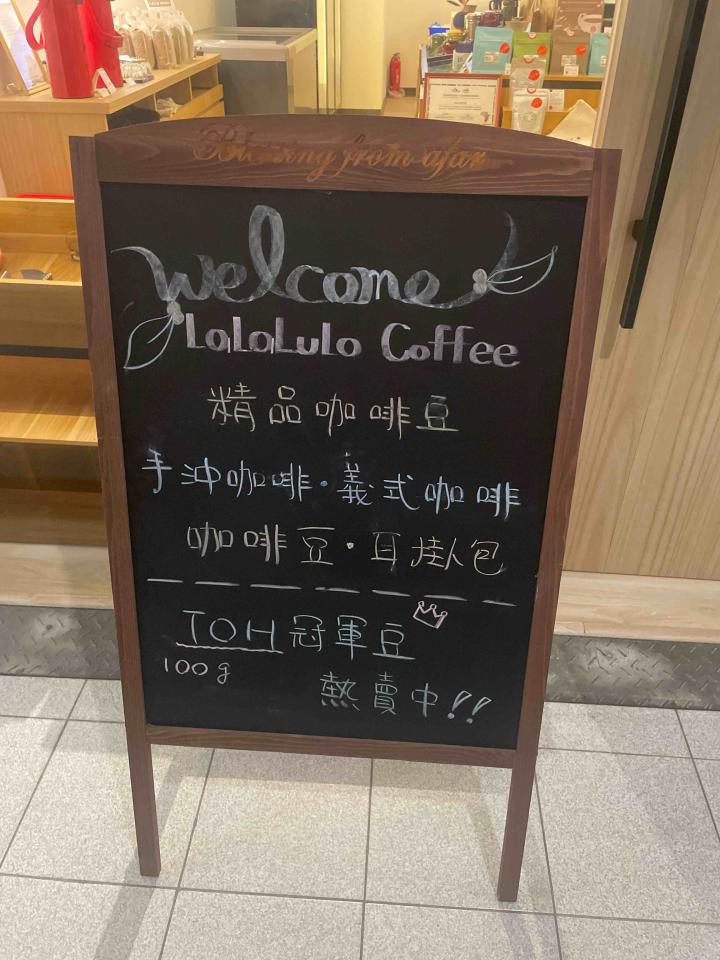 Blessing from afar
welcome
LaLaLuLa Coffee
精品咖啡豆
手沖咖啡·義式咖啡
咖啡豆·耳掛包
TOH冠軍豆
100g
熱賣中!!